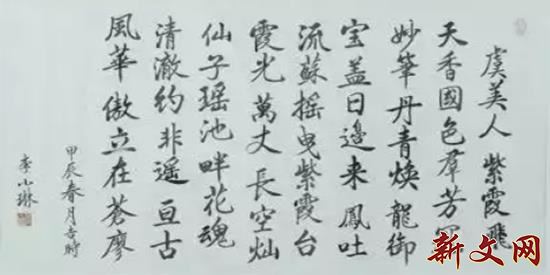 虞美人 紫霞飛
天香國色羣芳
妙筆丹青煥 龍御
宝盖日邊来 鳳吐
流蘇摇曳紫霞台
霞光萬丈長空灿
仙子瑶池畔花魂
清澈约非遥 亘古
風華傲立在蒼廖
甲辰春月吉時
李小琳
新文网